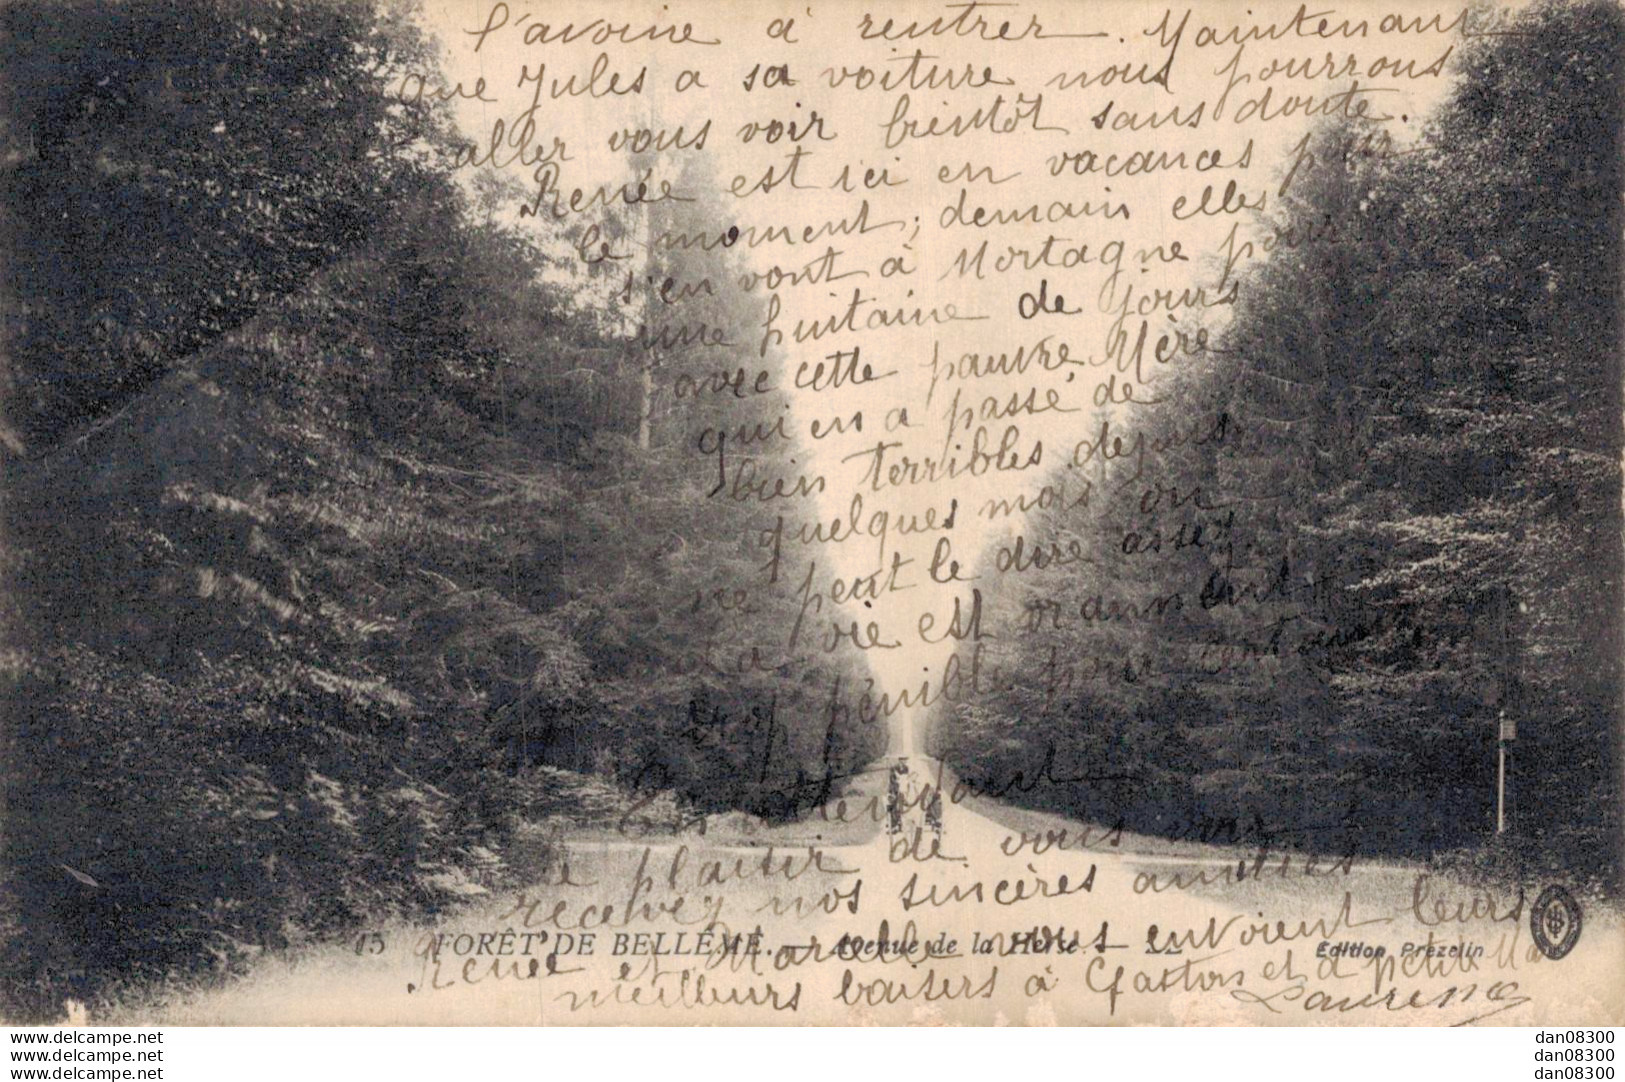 l'avoine à rentrer. Maintenant
que Jules a sa voiture nous pourrons
aller vous voir bientôt sans doute.
Renée est ici en vacances pour
le moment; demain elles
s'en vont à Mortagne pour
une huitaine de jours
avec cette pauvre Mère
qui en a passé de
bien terribles depuis
quelques mois on
ne peut le dire assez.
La vie est vraiment
pénible pour certains
En attendant
le plaisir de vous voir
recevez nos sincères amitiés
Renée et Marcelle vous envoient leurs
meilleurs baisers à Gaston et à petit
Laurence
15 FORÊT DE BELLÊME. — Avenue de la Herse — LL
Edition Prezelin
www.delcampe.net
www.delcampe.net
www.delcampe.net
dan08300
dan08300
dan08300